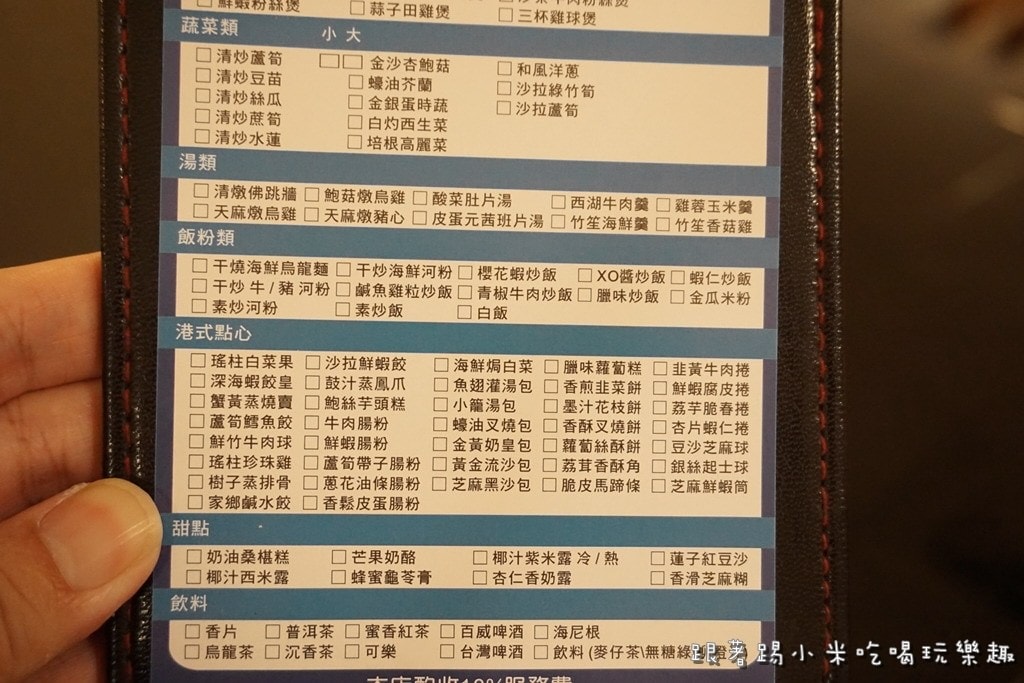 鮮蝦粉絲煲 □ 蒜子田雞煲 □
□ 三杯雞球煲
蔬菜類 小 大
□ 清炒蘆筍 □ □ 金沙杏鮑菇 □ 和風洋蔥
□ 清炒豆苗 □ 蠔油芥蘭 □ 沙拉綠竹筍
□ 清炒絲瓜 □ 金銀蛋時蔬 □ 沙拉蘆筍
□ 清炒蔗筍 □ 白灼西生菜
□ 清炒水蓮 □ 培根高麗菜
湯類
□ 清燉佛跳牆 □ 鮑菇燉烏雞 □ 酸菜肚片湯 □ 西湖牛肉羹 □ 雞蓉玉米羹
□ 天麻燉烏雞 □ 天麻燉豬心 □ 皮蛋元茜班片湯 □ 竹笙海鮮羹 □ 竹笙香菇雞
飯粉類
□ 干燒海鮮烏龍麵 □ 干炒海鮮河粉 □ 櫻花蝦炒飯 □ XO醬炒飯 □ 蝦仁炒飯
□ 干炒 牛 / 豬 河粉 □ 鹹魚雞粒炒飯 □ 青椒牛肉炒飯 □ 臘味炒飯 □ 金瓜米粉
□ 素炒河粉 □ 素炒飯 □ 白飯
港式點心
□ 瑤柱白菜果 □ 沙拉鮮蝦餃 □ 海鮮焗白菜 □ 臘味蘿蔔糕 □ 韭黃牛肉捲
□ 深海蝦餃皇 □ 鼓汁蒸鳳爪 □ 魚翅灌湯包 □ 香煎韭菜餅 □ 鮮蝦腐皮捲
□ 蟹黃蒸燒賣 □ 鮑絲芋頭糕 □ 小籠湯包 □ 墨汁花枝餅 □ 荔芋脆春捲
□ 蘆筍鱈魚餃 □ 牛肉腸粉 □ 蠔油叉燒包 □ 香酥叉燒餅 □ 杏片蝦仁捲
□ 鮮竹牛肉球 □ 鮮蝦腸粉 □ 金黃奶皇包 □ 蘿蔔絲酥餅 □ 豆沙芝麻球
□ 瑤柱珍珠雞 □ 蘆筍帶子腸粉 □ 黃金流沙包 □ 荔茸香酥角 □ 銀絲起士球
□ 樹子蒸排骨 □ 蔥花油條腸粉 □ 芝麻黑沙包 □ 脆皮馬蹄條 □ 芝麻鮮蝦筒
□ 家鄉鹹水餃 □ 香鬆皮蛋腸粉
甜點
□ 奶油桑椹糕 □ 芒果奶酪 □ 椰汁紫米露 冷 / 熱 □ 蓮子紅豆沙
□ 椰汁西米露 □ 蜂蜜龜苓膏 □ 杏仁香奶露 □ 香滑芝麻糊
飲料
□ 香片 □ 普洱茶 □ 蜜香紅茶 □ 百威啤酒 □ 海尼根
□ 烏龍茶 □ 沉香茶 □ 可樂 □ 台灣啤酒 □ 飲料 (麥仔茶\無糖綠
本店酌收10%服務費
跟著踢小米吃喝玩樂趣